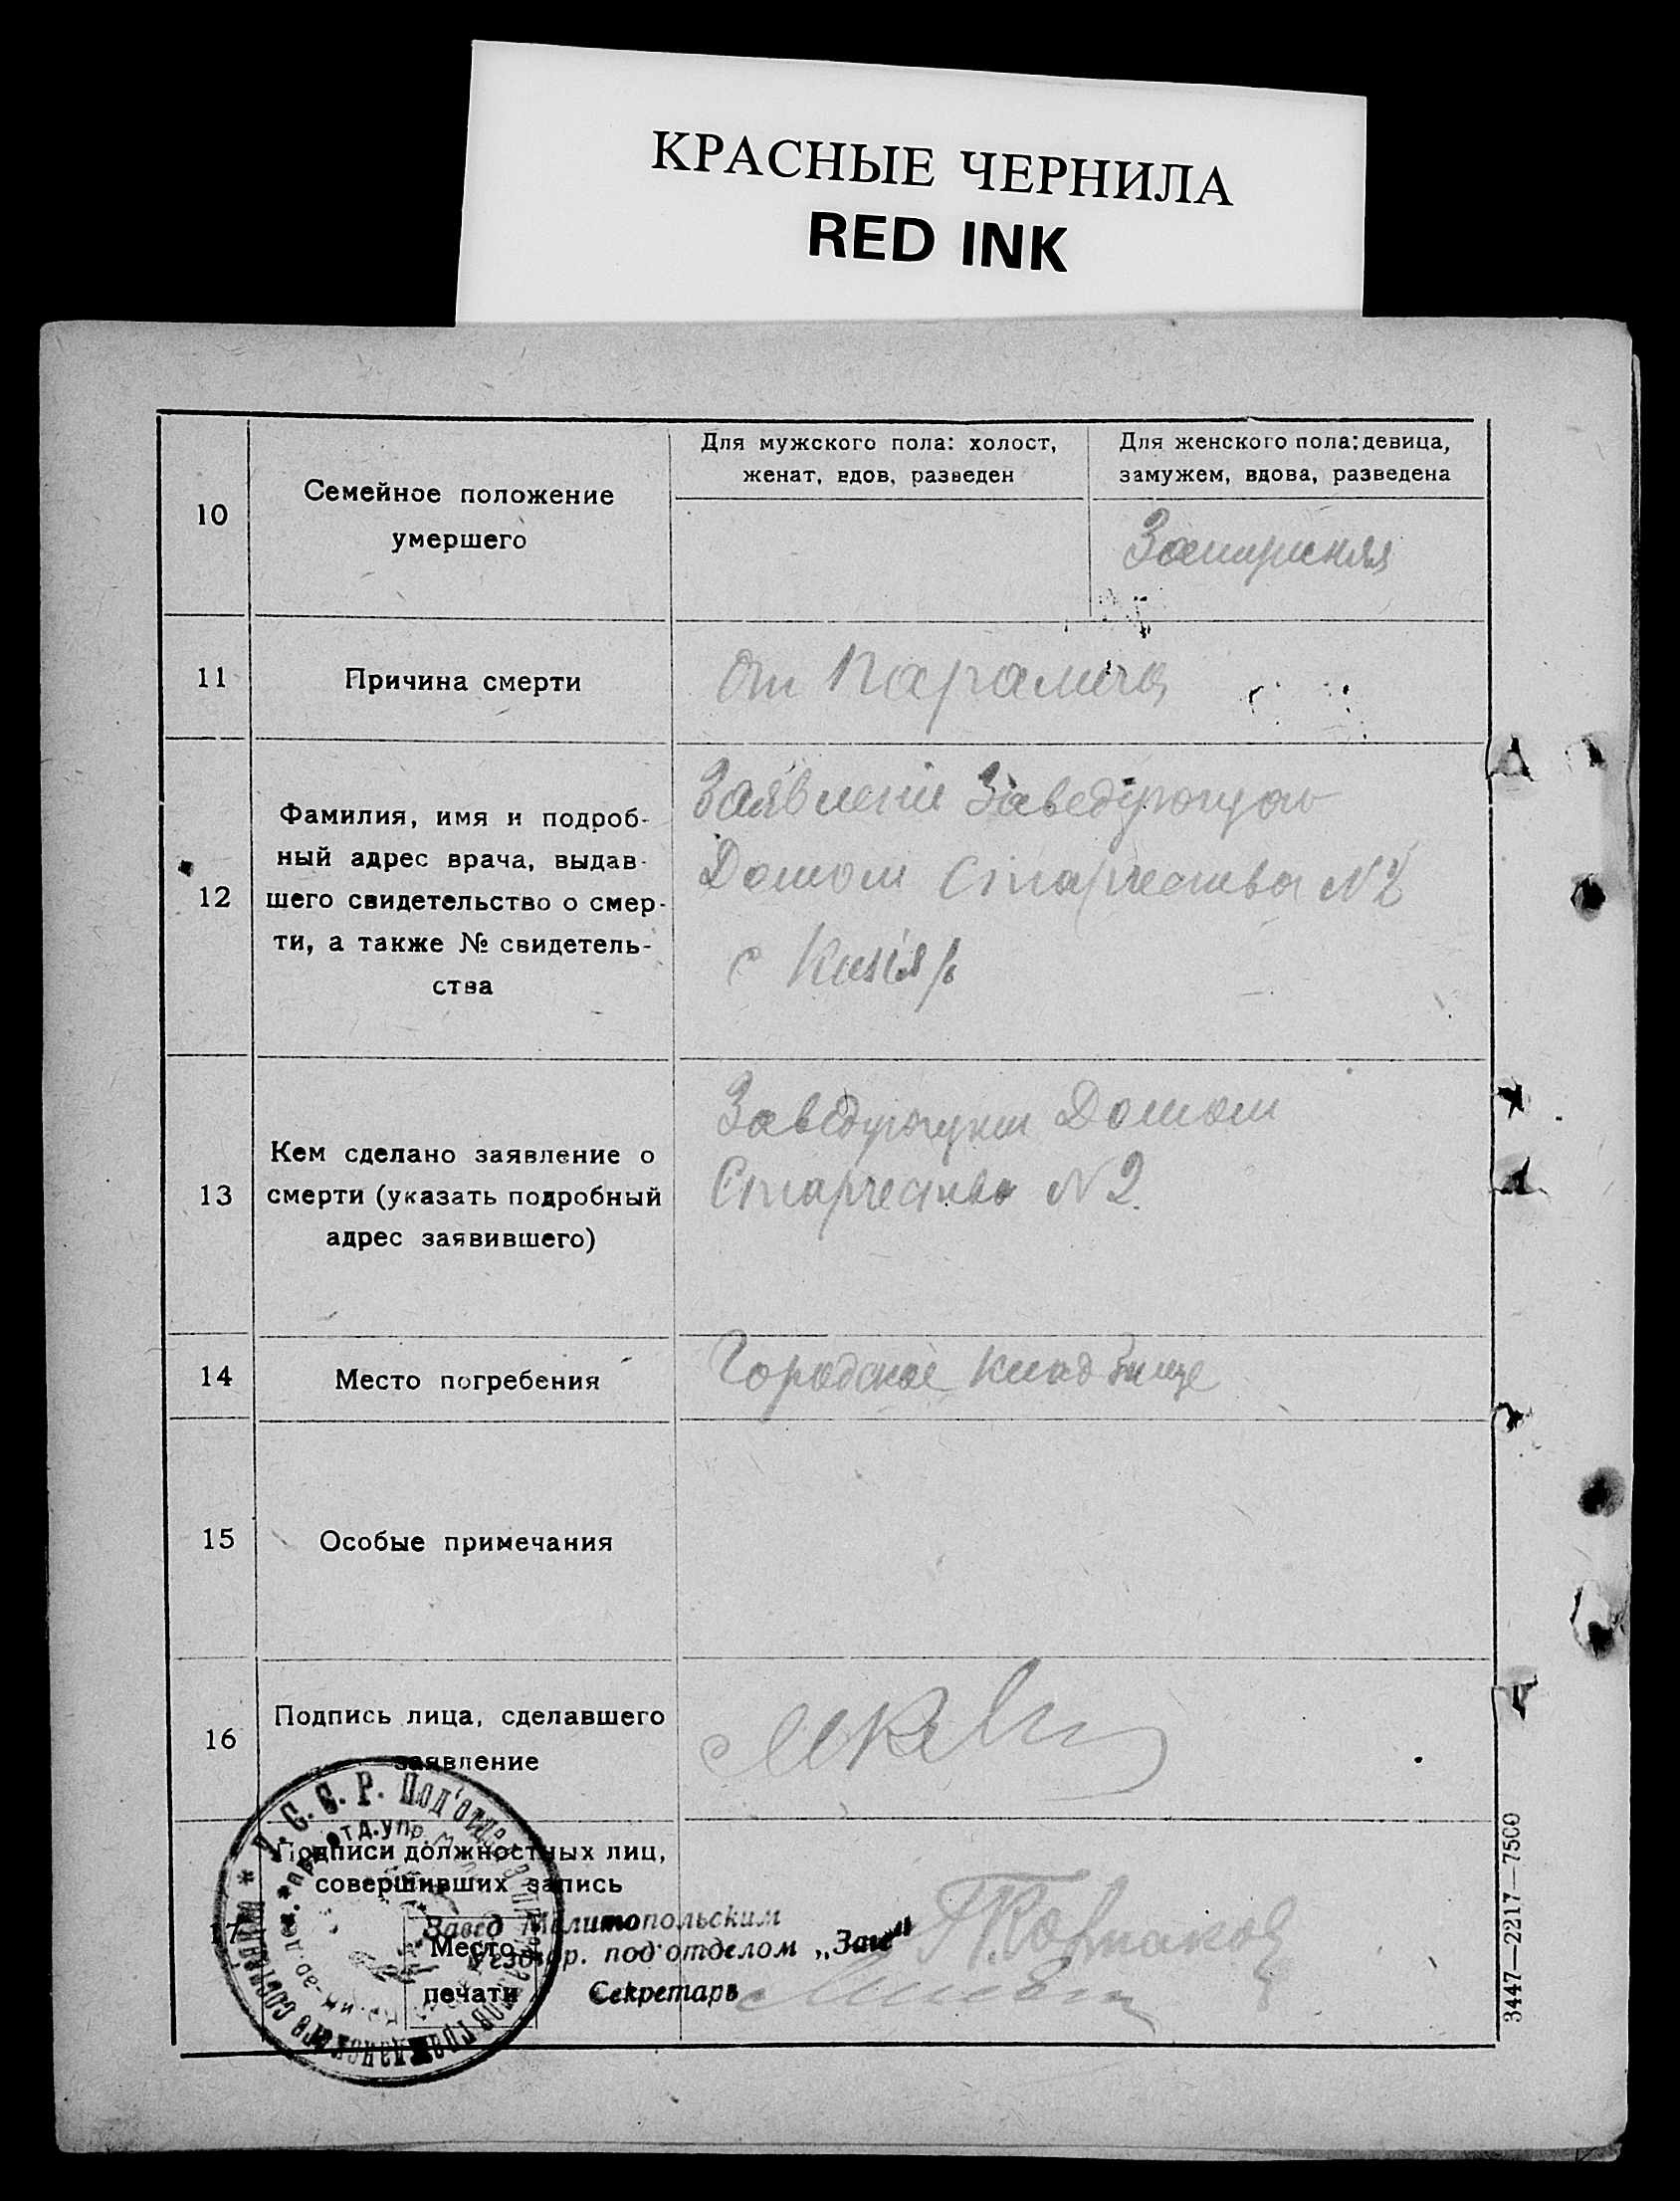 КРАСНЫЕ ЧЕРНИЛА
RED INK
10
Семейное положение
умершего
Для мужского пола: холост,
женат, вдов, разведен
Для женского пола: девица,
замужем, вдова, разведена
Замужняя
11
Причина смерти
от Паралича
12
Фамилия, имя и подроб-
ный адрес врача, выдав-
шего свидетельство о смер-
ти, а также № свидетель-
ства
Заявление Заведующаго
Домом Старчества N2
с
13
Кем сделано заявление о
смерти (указать подробный
адрес заявившего)
Заведующим Домом
Старчества N2.
14
Место погребения
Городское Кладбище
15
Особые примечания
16
Подпись лица, сделавшего
заявление
17
Подписи должностных лиц,
совершивших запись
Завед Мелитопольским
Уездгор. под'отделом „Загс"
Секретарь
Место
печати
С. С. Р. Под'отдел
3447—2217—7500